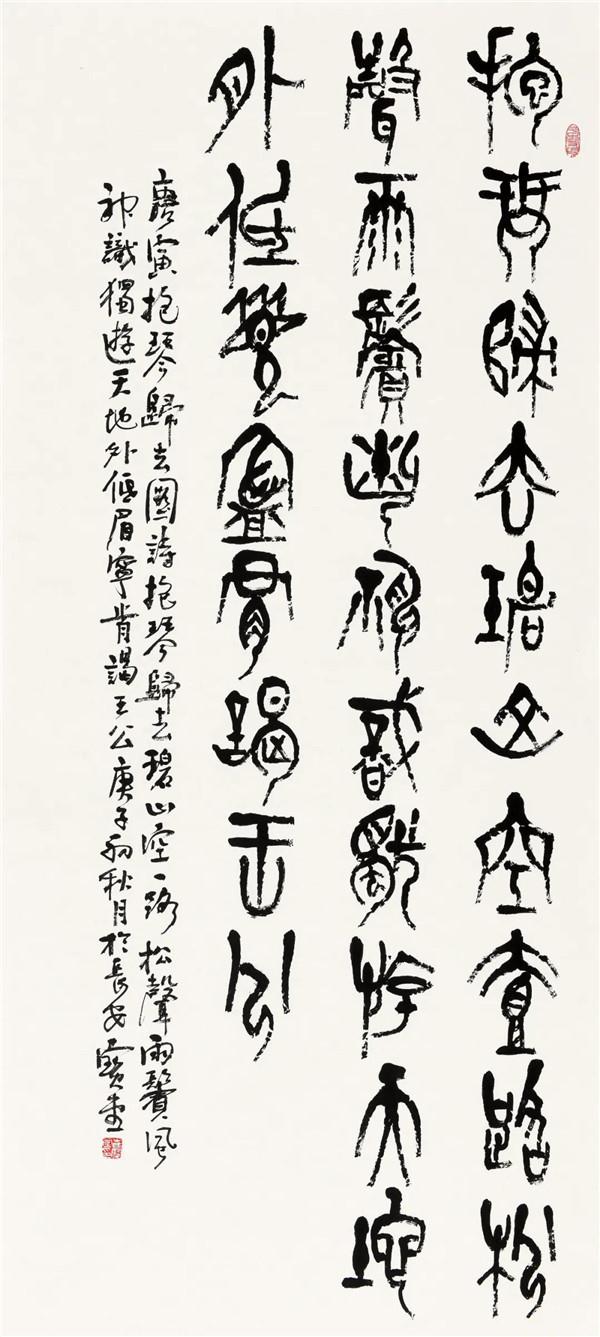 抱琴歸去碧山空壹路松
聲兩鬢風神識獨游天地
外低眉寧肯謁王公
唐寅抱琴歸去圖詩抱琴歸去碧山空一路松聲兩鬢風
神識獨遊天地外低眉寧肯謁王公庚子初秋月於長安